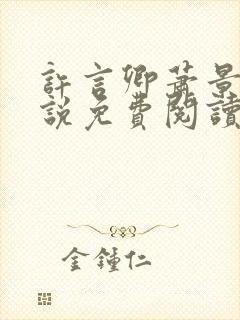 許言卿蕭景
說免費閱讀
金鍾仁